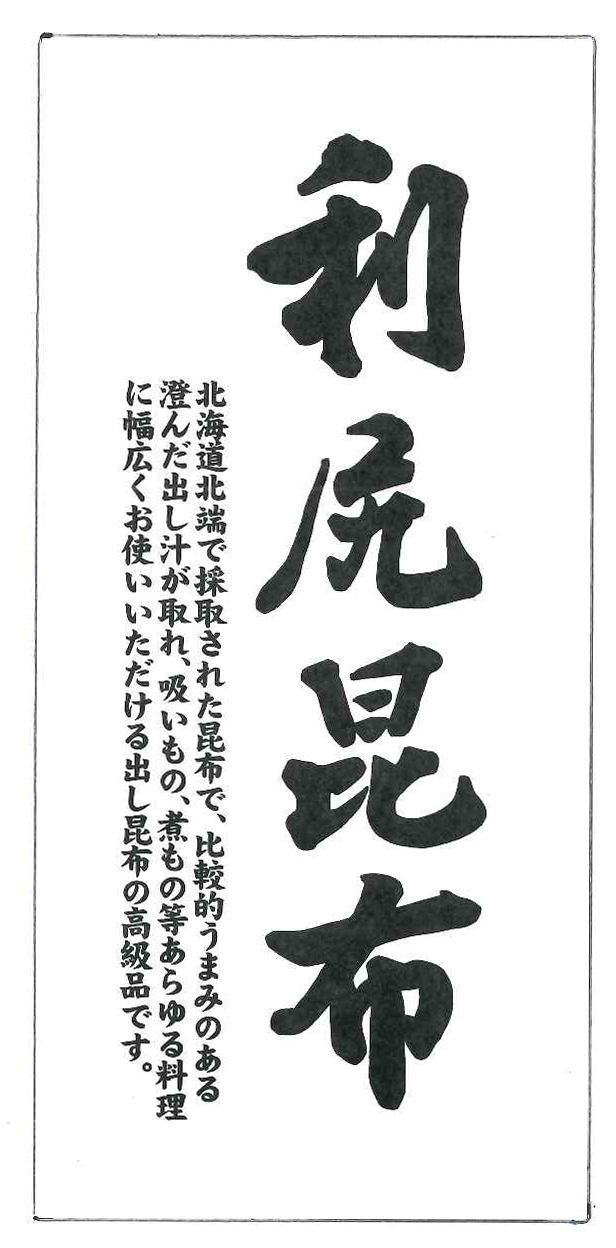 利尻昆布
北海道北端で採取された昆布で、比較的うまみのある
澄んだ出し汁が取れ、吸いもの、煮もの等あらゆる料理
に幅広くお使いいただける出し昆布の高級品です。